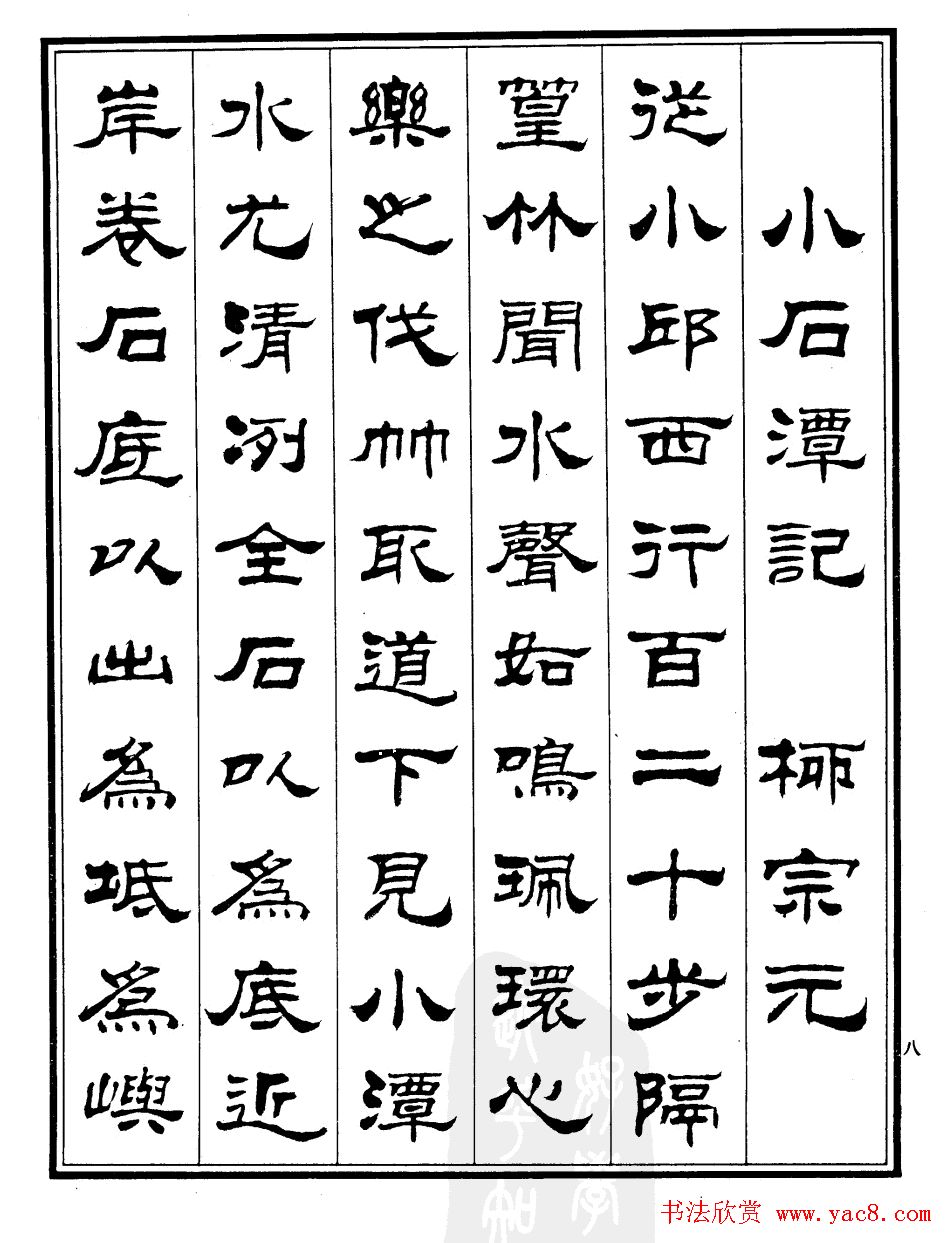 小石潭記 柳宗元
從小邱西行百二十步隔
篁林聞水聲如鳴珮環心
樂之伐竹取道下見小潭
水尤清冽全石以為底近
岸卷石底以出為坻為嶼
八
书法欣赏 www.yac8.com